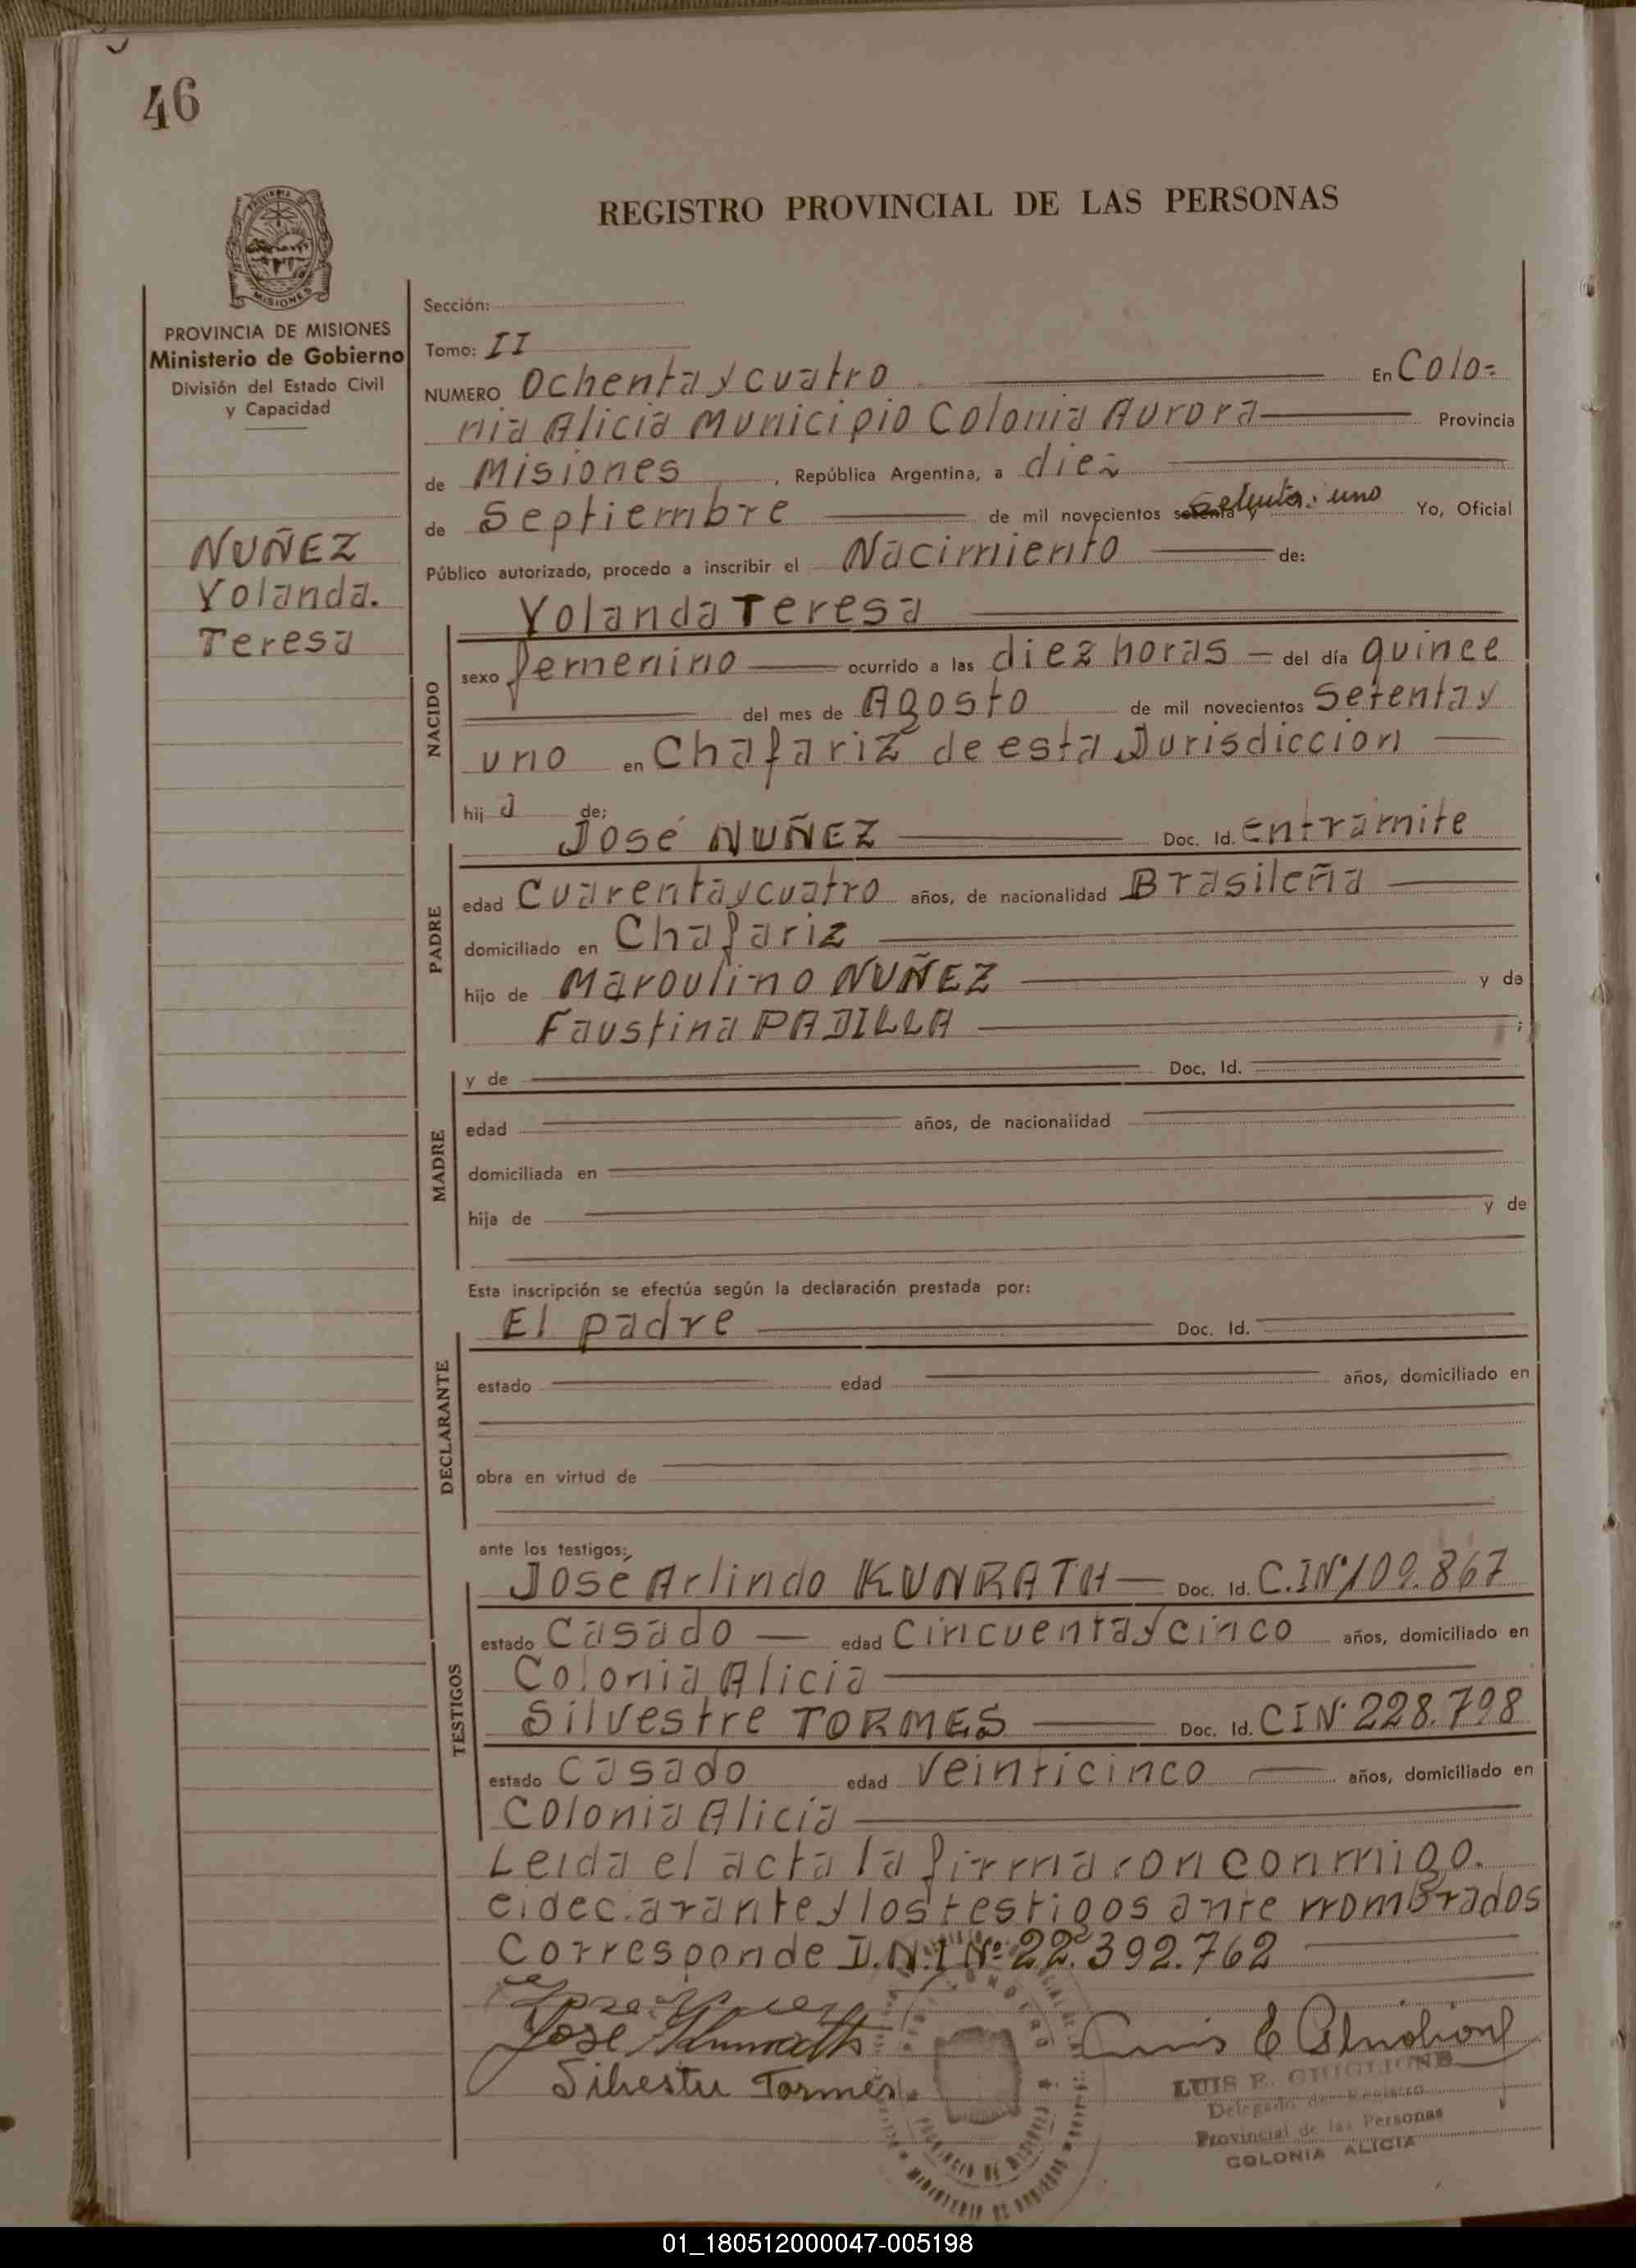 46
REGISTRO PROVINCIAL DE LAS PERSONAS
MISIONES
PROVINCIA DE MISIONES
Ministerio de Gobierno
División del Estado Civil
y Capacidad
NUÑEZ
Yolanda.
Teresa
Sección:
Tomo: II
NUMERO Ochenta y cuatro En Colo=
nia Alicia Municipio Colonia Aurora Provincia
de Misiones, República Argentina, a diez
de Septiembre de mil novecientos setenta y setenta: uno Yo, Oficial
Público autorizado, procedo a inscribir el Nacimiento de:
Yolanda Teresa
NACIDO
sexo femenino ocurrido a las diez horas del día quince
del mes de Agosto de mil novecientos Setenta y
uno en Chafariz de esta Jurisdicción
hija de:
José NUÑEZ Doc. Id. En tramite
PADRE
edad Cuarenta y cuatro años, de nacionalidad Brasileña
domiciliado en Chafariz
hijo de Maroulino NUÑEZ y de
Faustina PADILLA ;
y de Doc. Id.
MADRE
edad años, de nacionalidad
domiciliada en
hija de y de
Esta inscripción se efectúa según la declaración prestada por:
El padre Doc. Id.
DECLARANTE
estado edad años, domiciliado en
obra en virtud de
ante los testigos:
José Arlindo KUNRATH Doc. Id. C.I Nº 109.867
TESTIGOS
estado Casado edad Cincuenta y cinco años, domiciliado en
Colonia Alicia
Silvestre TORMES Doc. Id. C I Nº 228.798
estado Casado edad Veinticinco años, domiciliado en
Colonia Alicia
Leida el acta la firmaron conmigo.
el declarante y los testigos ante nombrados
Corresponde D.N.I Nº 22.392.762
José Kunrath
Silvestre Tormes
LUIS E. GHIGLIONE
Delegado del Registro
Provincial de las Personas
COLONIA ALICIA
PROVINCIA DE MISIONES
MINISTERIO DE GOBIERNO
01_180512000047-005198